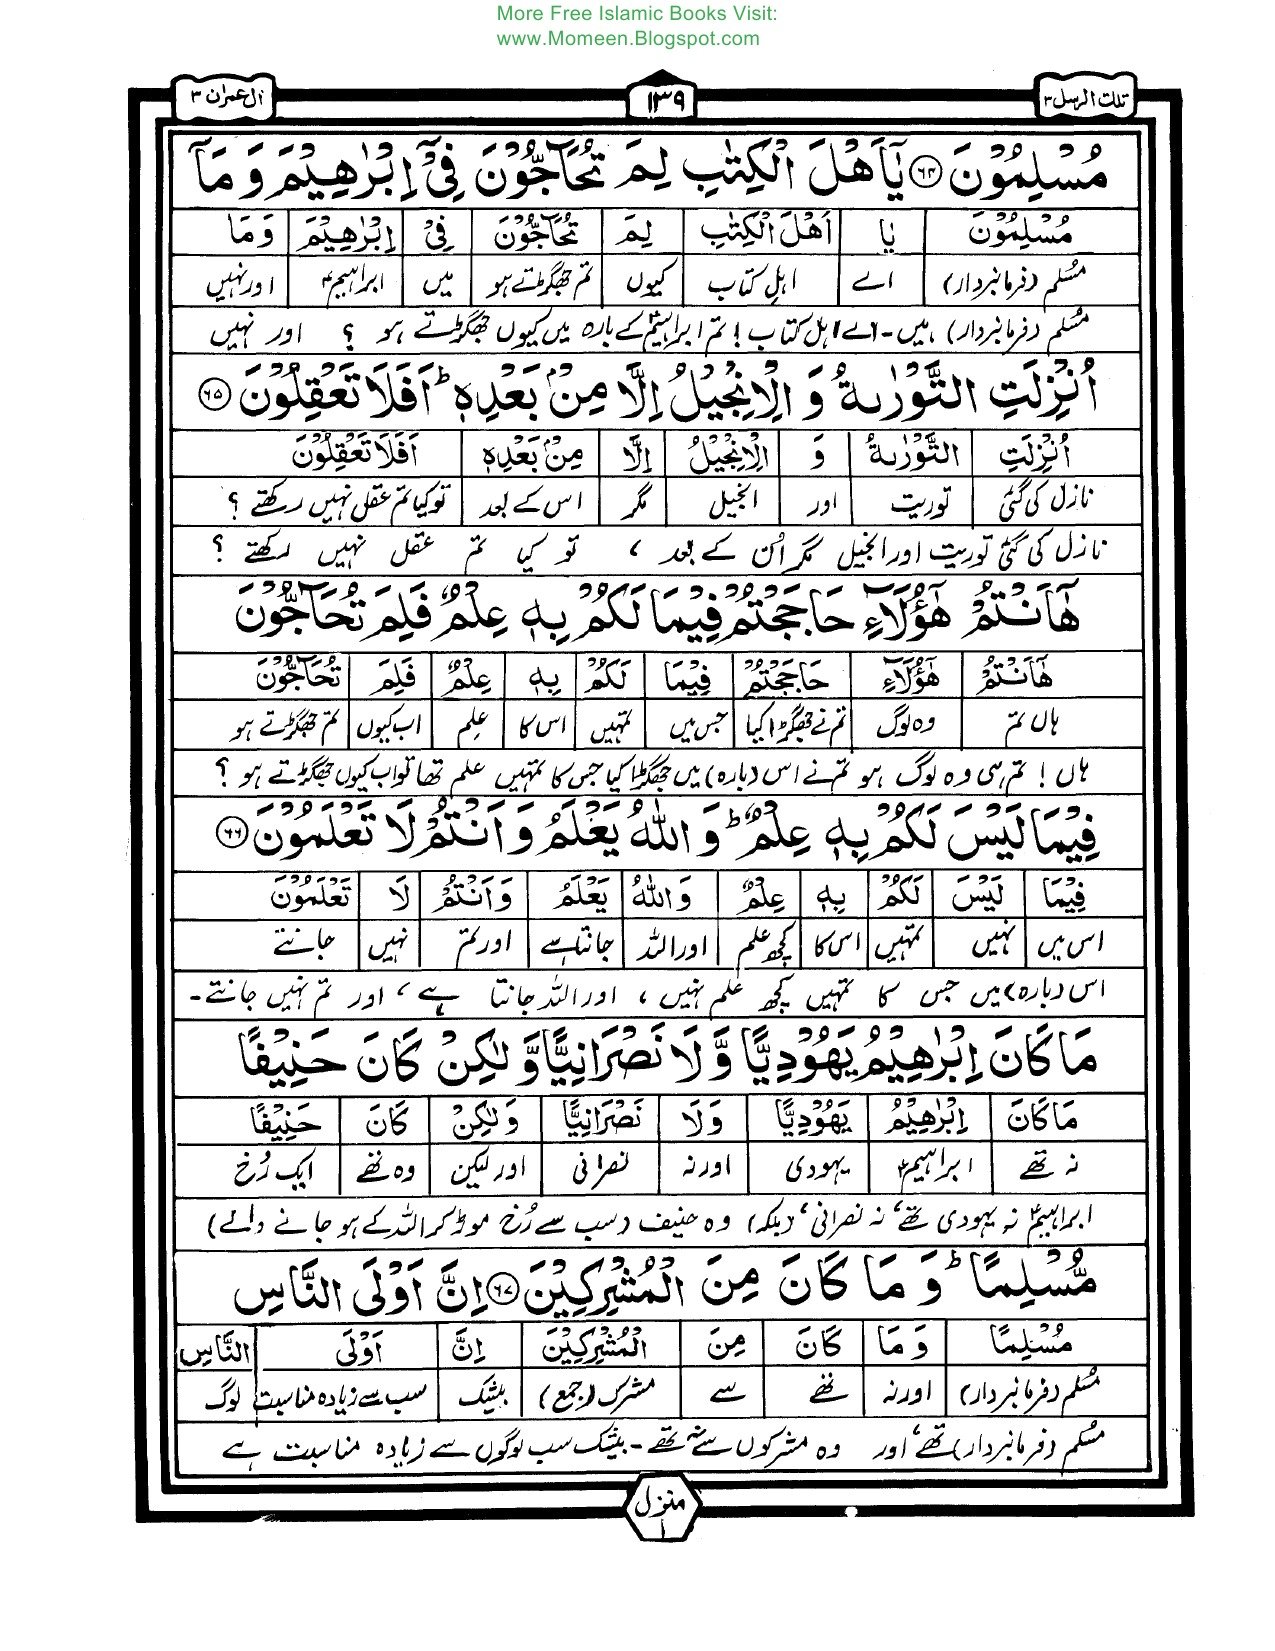 More Free Islamic Books Visit:
www.Momeen.Blogspot.com
تلك الرسل ۳ ۱۳۹ ال عمران ۳
مُسْلِمُوْنَ ۶۴ يٰۤاَهْلَ الْكِتٰبِ لِمَ تُحَآجُّوْنَ فِيْۤ اِبْرٰهِيْمَ وَ مَاۤ
مُسْلِمُوْنَ يَا اَهْلَ الْكِتٰبِ لِمَ تُحَآجُّوْنَ فِيْۤ اِبْرٰهِيْمَ وَ مَا
مسلم (فرمانبردار) اے اہلِ کتاب کیوں تم جھگڑتے ہو میں ابراہیمؑ اور نہیں
مسلم (فرمانبردار) ہیں۔ اے اہل کتاب! تم ابراہیمؑ کے بارہ میں کیوں جھگڑتے ہو ؟ اور نہیں
اُنْزِلَتِ التَّوْرٰىةُ وَ الْاِنْجِيْلُ اِلَّا مِنْۢ بَعْدِهٖ ؕ اَفَلَا تَعْقِلُوْنَ ۶۵
اُنْزِلَتِ التَّوْرٰىةُ وَ الْاِنْجِيْلُ اِلَّا مِنْۢ بَعْدِهٖ اَفَلَا تَعْقِلُوْنَ
نازل کی گئی توریت اور انجیل مگر اس کے بعد تو کیا تم عقل نہیں رکھتے ؟
نازل کی گئی توریت اور انجیل مگر اُن کے بعد ، تو کیا تم عقل نہیں رکھتے ؟
هٰۤاَنْتُمْ هٰۤؤُلَآءِ حَاجَجْتُمْ فِيْمَا لَكُمْ بِهٖ عِلْمٌ فَلِمَ تُحَآجُّوْنَ
هٰۤاَنْتُمْ هٰۤؤُلَآءِ حَاجَجْتُمْ فِيْمَا لَكُمْ بِهٖ عِلْمٌ فَلِمَ تُحَآجُّوْنَ
ہاں تم وہ لوگ تم نے جھگڑا کیا جس میں تمہیں اس کا علم اب کیوں تم جھگڑتے ہو
ہاں! تم ہی وہ لوگ ہو تم نے اس (بارہ) میں جھگڑا کیا جس کا تمہیں علم تھا تو اب کیوں جھگڑتے ہو ؟
فِيْمَا لَيْسَ لَكُمْ بِهٖ عِلْمٌ ؕ وَ اللّٰهُ يَعْلَمُ وَ اَنْتُمْ لَا تَعْلَمُوْنَ ۶۶
فِيْمَا لَيْسَ لَكُمْ بِهٖ عِلْمٌ وَ اللّٰهُ يَعْلَمُ وَ اَنْتُمْ لَا تَعْلَمُوْنَ
اس میں نہیں تمہیں اس کا کچھ علم اور اللہ جانتا ہے اور تم نہیں جانتے
اس (بارہ) میں جس کا تمہیں کچھ علم نہیں ، اور اللہ جانتا ہے ، اور تم نہیں جانتے۔
مَا كَانَ اِبْرٰهِيْمُ يَهُوْدِيًّا وَّ لَا نَصْرَانِيًّا وَّ لٰكِنْ كَانَ حَنِيْفًا
مَا كَانَ اِبْرٰهِيْمُ يَهُوْدِيًّا وَلَا نَصْرَانِيًّا وَلٰكِنْ كَانَ حَنِيْفًا
نہ تھے ابراہیمؑ یہودی اور نہ نصرانی اور لیکن وہ تھے ایک رُخ
ابراہیمؑ نہ یہودی تھے ، نہ نصرانی ، (بلکہ) وہ حنیف (سب سے رُخ موڑ کر اللہ کے ہو جانے والے)
مُّسْلِمًا ؕ وَ مَا كَانَ مِنَ الْمُشْرِكِيْنَ ۶۷ اِنَّ اَوْلَى النَّاسِ
مُسْلِمًا وَ مَا كَانَ مِنَ الْمُشْرِكِيْنَ اِنَّ اَوْلَى النَّاسِ
مسلم (فرمانبردار) اور نہ تھے سے مشرک (جمع) بیشک سب سے زیادہ مناسبت لوگ
مسلم (فرمانبردار) تھے ، اور وہ مشرکوں سے نہ تھے۔ بیشک سب لوگوں سے زیادہ مناسبت ہے
منزل
۱